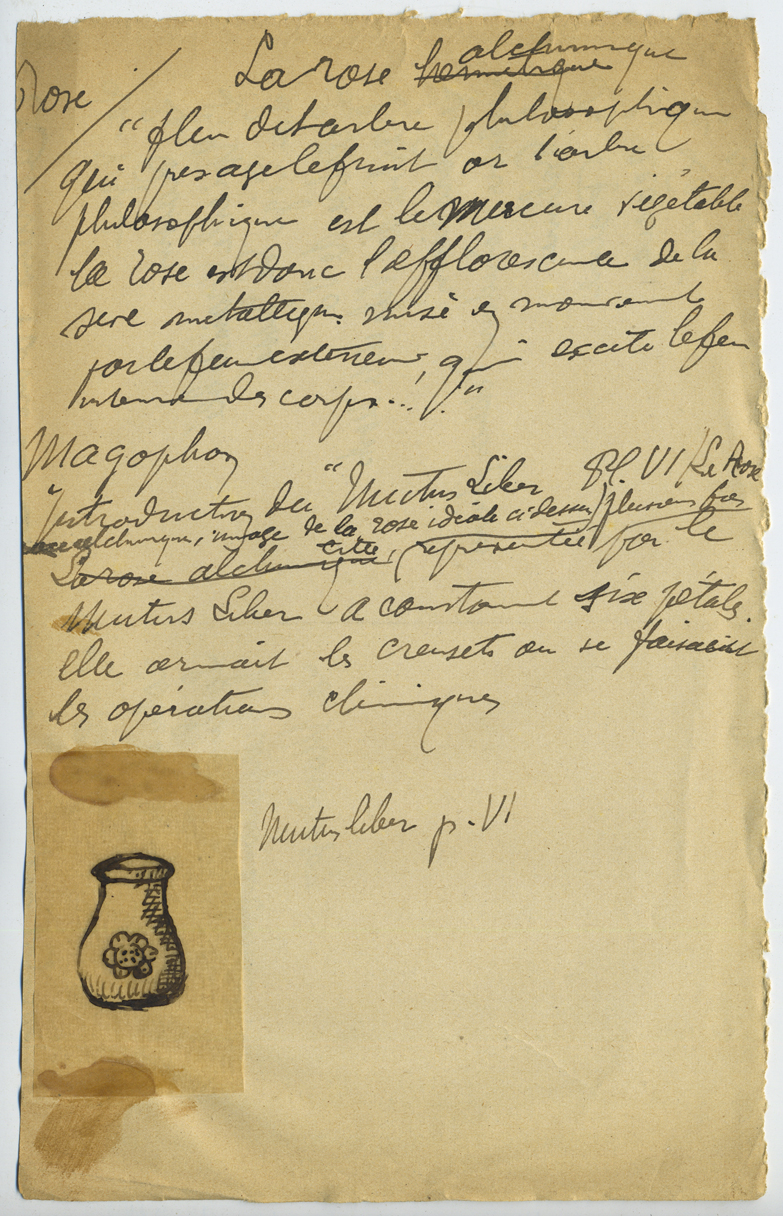 Rose
La rose hermétique alchimique
"fleur de l'arbre philosophique
qui présage le fruit or l'arbre
philosophique est le Mercure végétable
la rose est donc l'efflorescence de la
sève métallique mise en mouvement
par le feu extérieur, qui excite le feu
interne des corps..! "
Magophon
Introduction du "Mutus Liber Pl. VI / La Rose
alchimique, image de la rose idéale ci dessus / plusieurs fois
La rose alchimique citée, représentée par le
Mutus Liber a constamment six pétales.
elle ornait les creusets ou se faisaient
les opérations chimiques
Mutus liber p. VI